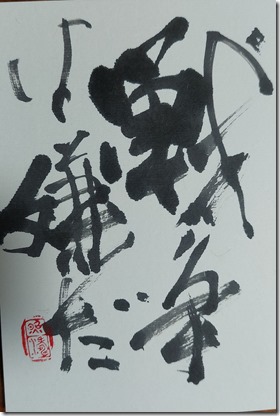 戦争
は嫌だ